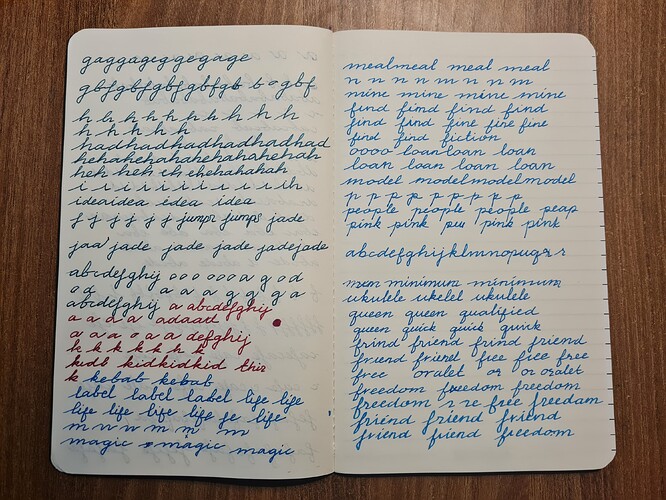 gaggageggegage
gbfgbfgbfgbfgb b o gbf
h h h h h h h h h
h h h h h
hadhadhadhadhadhadhad
hehahehahehahehahehah
heh heh eh ehehahahah
i i i i i i i i i i ih
ideaidea idea idea
j j j j j j jumps jumps jade
jaa jade jade jade jadejade
abcdefghij o o o o o a g o d
o d a a a g g g a
abcdefghij a abcdefghij
a a a a adaad
a a a o a a defghij
k k k k k k k
kidb kidkidkid this
k kebab kebab
label label label life life
life life life life fe life
m n n m m m
magic magic magic
mealmeal meal meal
n n n n m n n m
mine mine mine mine
find find find find
find find fine fine fine
find find fiction
oooo loanloan loan
loan loan loan loan
model modelmodelmodel
p p p p p p p p
people people people peap
pink pink piu pink pink
abcdefghijklmnopuqrs r
men minimum minimum
ukulele ukelel ukulele
queen queen qualified
queen quick quick quick
frind friend friend friend
friend friend free free free
free oralet or or oralet
freedom freedom freedom
freedom r re free freedam
friend friend friend
friend friend freedom